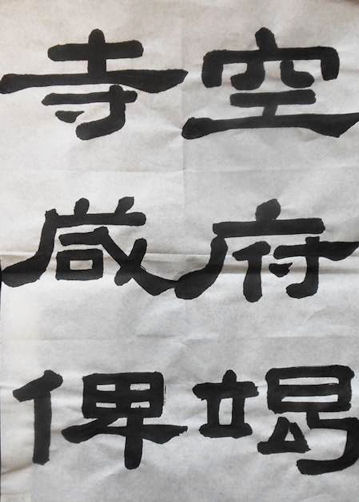 空府竭
寺咸俾